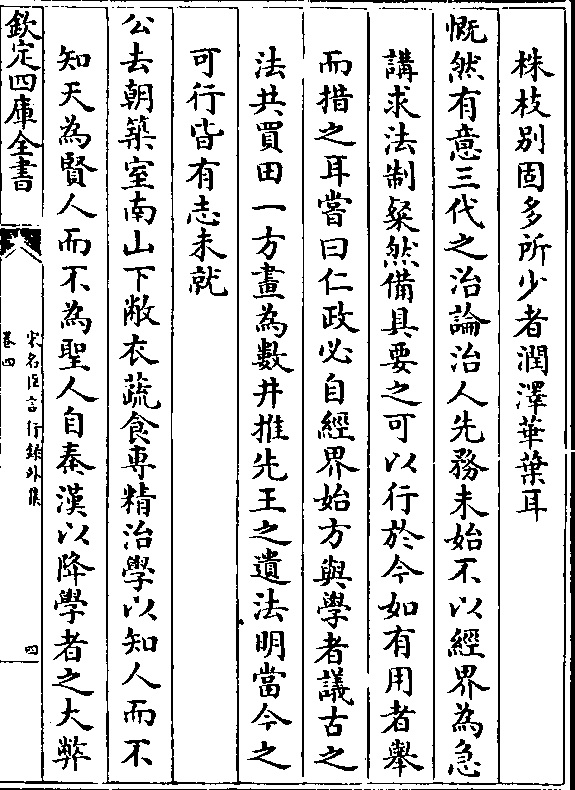 株枝别固多所少者潤澤華葉耳
慨然有意三代之治論治人先務未始不以經界為急
講求法制粲然備具要之可以行於今如有用者舉
而措之耳嘗曰仁政必自經界始方與學者議古之
法共買田一方畫為數井推先王之遺法明當今之
可行皆有志未就
公去朝築室南山下敝衣蔬食専精治學以知人而不
知天為賢人而不為聖人自秦漢以降學者之大弊
欽定四庫全書
宋名臣言行録外集
卷四
四